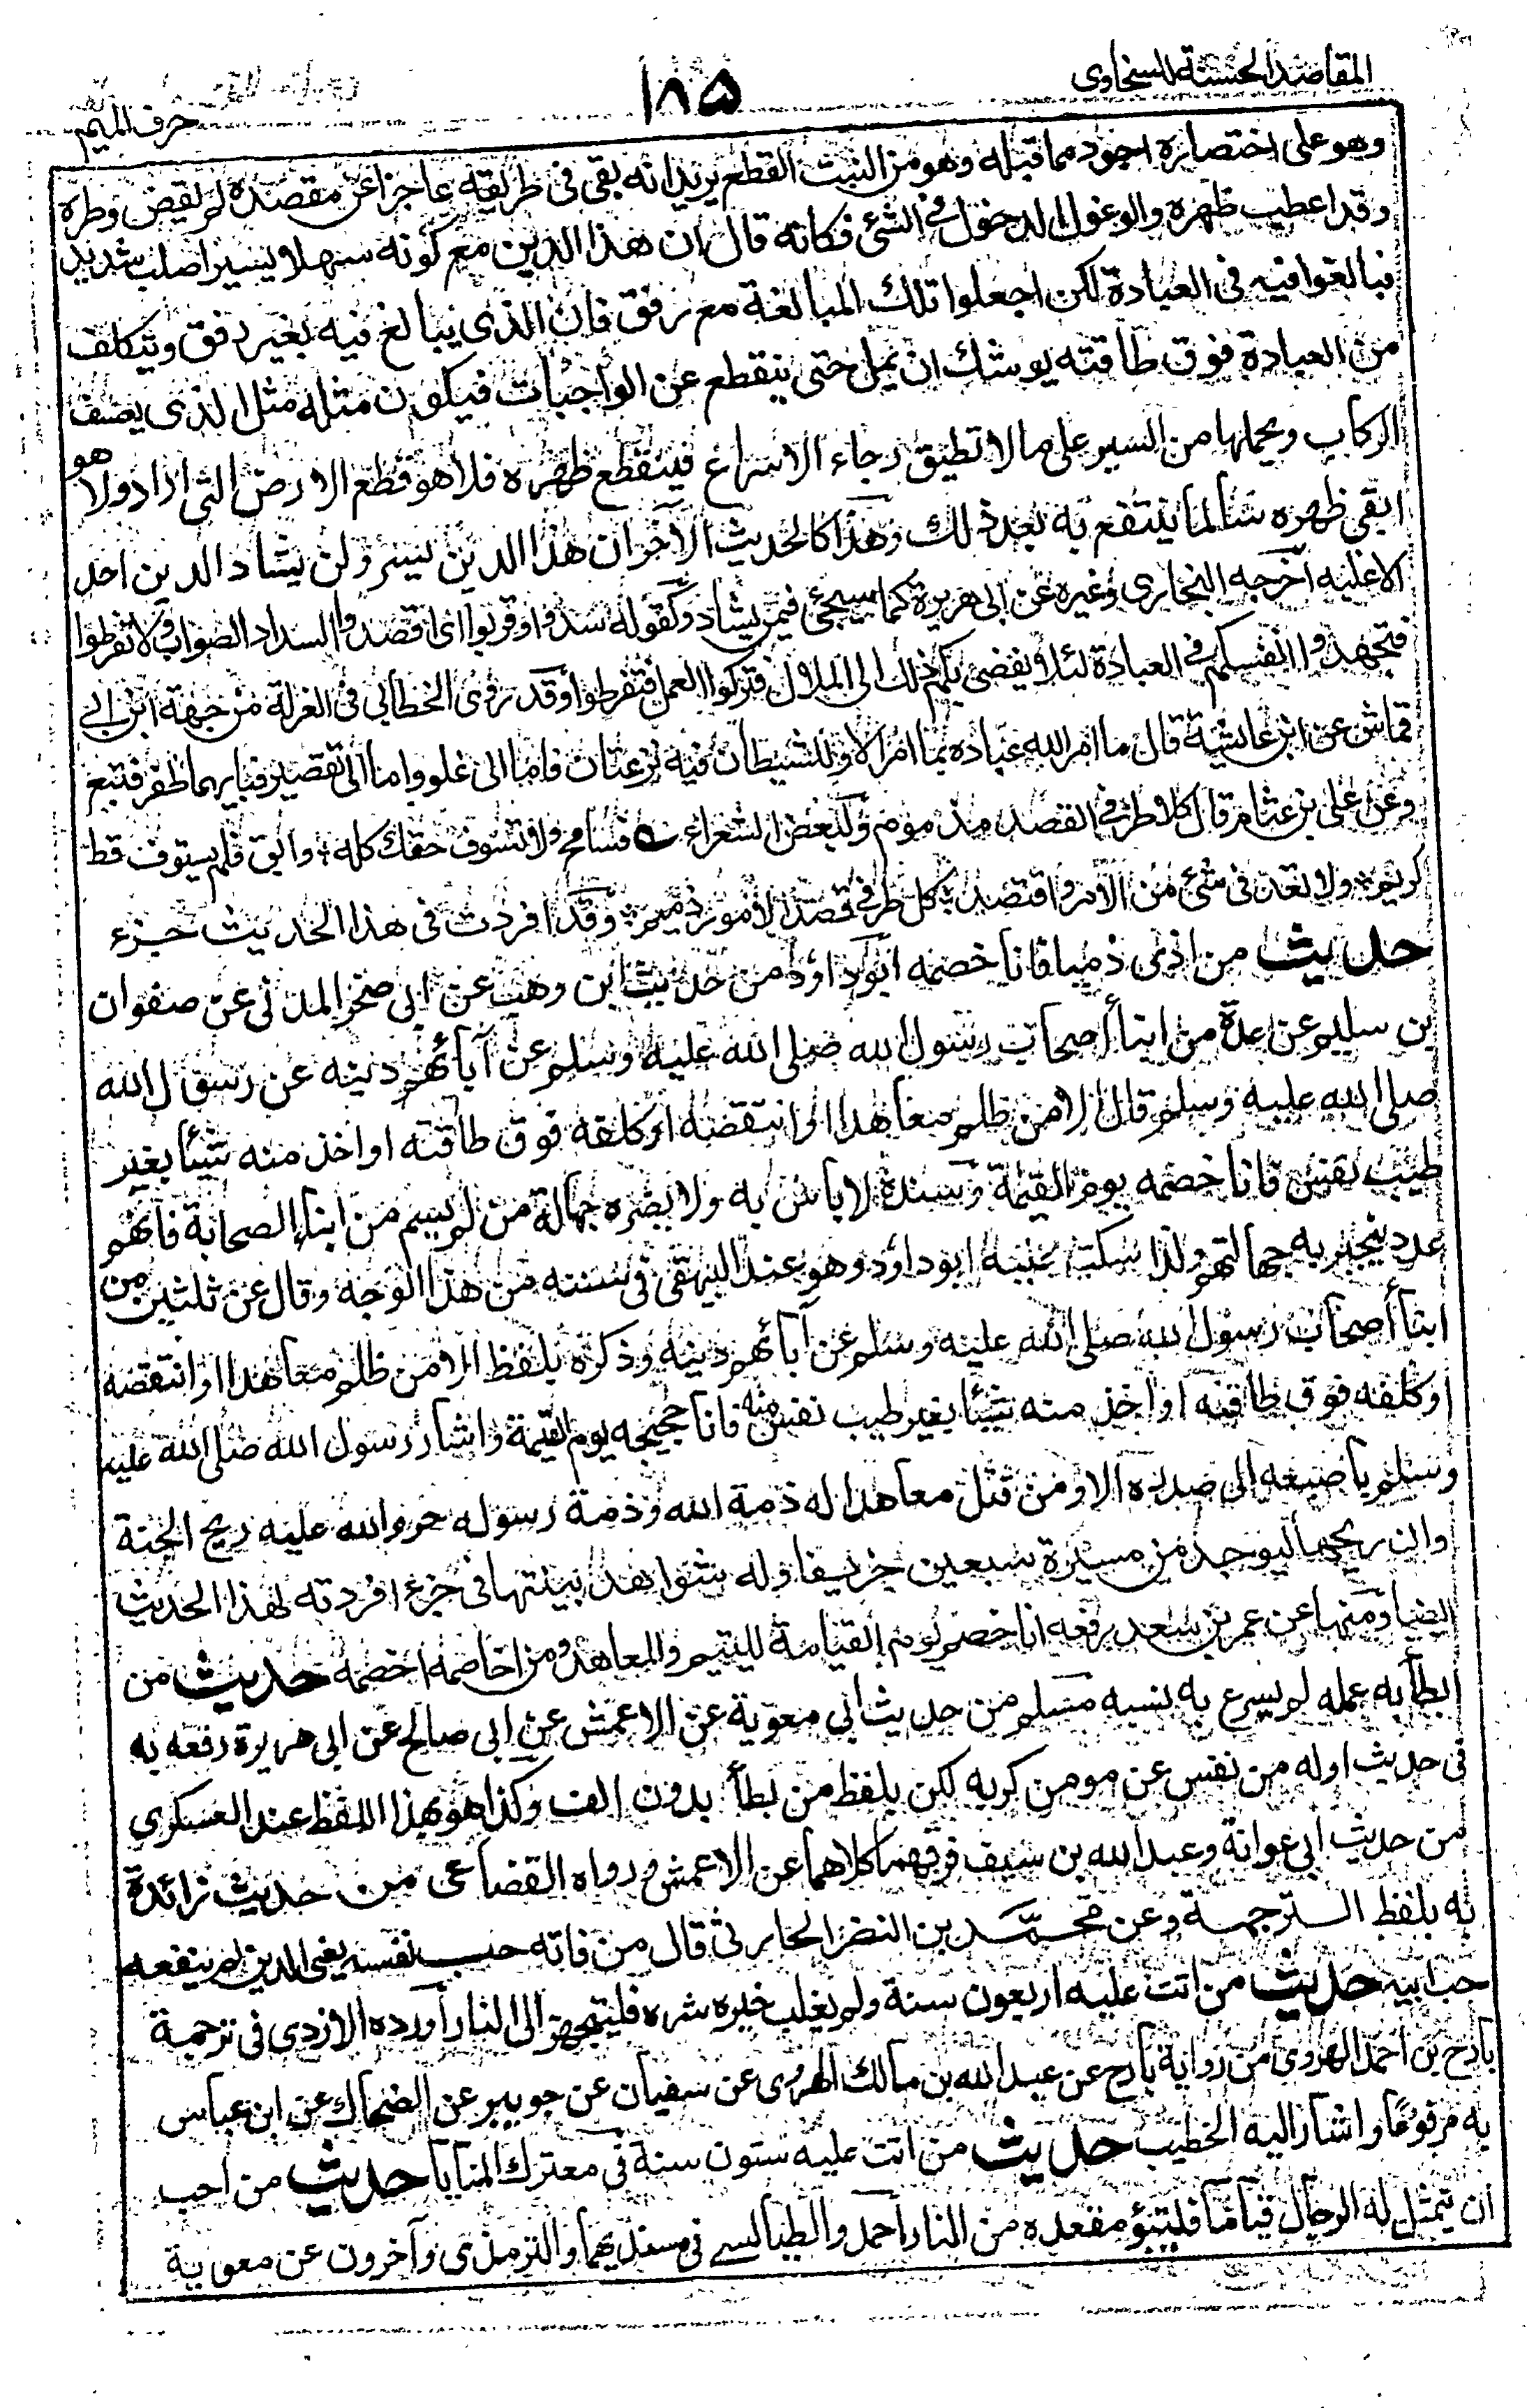 المقاصد الحسنة للسخاوى
١٨٥
حرف الميم
وهو على اختصاره اجود مما قبله وهو من البت القطع يريد انه بقى فى طريقه عاجزا عن مقصده لم يقض وطره
وقد اعطب ظهره والوغول الدخول فى الشئ فكانه قال ان هذا الدين مع كونه سهلا يسيرا صلب شديد
فبالغوا فيه فى العبادة لكن اجعلوا تلك المبالغة مع رفق فان الذى يبالغ فيه بغير رفق ويتكلف
من العبادة فوق طاقته يوشك ان يمل حتى ينقطع عن الواجبات فيكون مثله مثل الذى يعسف
الركاب ويحملها من السير على ما لا تطيق رجاء الاسراع فينقطع ظهره فلا هو قطع الارض التى اراد ولا هو
ابقى ظهره سالما ينتفع به بعد ذلك وهذا كالحديث الآخر ان هذا الدين يسر ولن يشاد الدين احد
الا غلبه اخرجه البخارى وغيره عن ابى هريرة كما سيجئ فيمن يشاد وكقوله سددوا وقربوا اى اقصدوا السداد الصواب ولا تفرطوا
فتجهدوا انفسكم فى العبادة لئلا يفضى بكم ذلك الى الملال فتتركوا العمل فتفرطوا وقد روى الخطابى فى العزلة من جهة ابن ابى
قماش عن ابن عائشة قال ما امر الله عباده بما امر الا وللشيطان فيه نزغتان فاما الى غلو واما الى تقصير فبايهما ظفر فنتع
وعن على بن عثام قال كلا طرفى القصد مذموم ولبعض الشعراء فسامح ولا تستوف حقك كله ؛ وابق فلم يستوف قط
كريم ؛ ولا تعد فى شئ من الامر واقتصد ؛ كلا طرفى قصد الامور ذميم ؛ وقد افردت فى هذا الحديث جزء
حديث من اذى ذميا فانا خصمه ابو داود من حديث ابن وهب عن ابى صخر المدنى عن صفوان
بن سليم عن عدة من ابناء اصحاب رسول الله صلى الله عليه وسلم عن آبائهم دنيه عن رسول الله
صلى الله عليه وسلم قال الا من ظلم معاهدا او انتقضه او كلفه فوق طاقته او اخذ منه شيئا بغير
طيب نفس فانا خصمه يوم القيمة وسنده لا باس به ولا يضره جهالة من لم يسم من ابناء الصحابة فانهم
عدد ينجبر به جهالتهم ولذا سكت عنه ابو داود وهو عند البيهقى فى سننه من هذا الوجه وقال عن ثلثين من
ابناء اصحاب رسول الله صلى الله عليه وسلم عن آبائهم دنيه وذكره بلفظ الا من ظلم معاهدا او انتقضه
او كلفه فوق طاقته او اخذ منه شيئا بغير طيب نفس منه فانا حجيجه يوم القيمة واشار رسول الله صلى الله عليه
وسلم باصبعه الى صدره الا ومن قتل معاهدا له ذمة الله وذمة رسوله حرم الله عليه ريح الجنة
وان ريحها ليوجد من مسيرة سبعين خريفا وله شواهد بينتها فى جزء افردته لهذا الحديث
ايضا ومنها عن عمر بن سعد رفعه انا خصم يوم القيامة لليتيم والمعاهد ومن اخاصمه اخصمه حديث من
ابطأ به عمله لم يسرع به نسبه مسلم من حديث ابى معوية عن الاعمش عن ابى صالح عن ابى هريرة رفعه به
فى حديث اوله من نفس عن مومن كربه لكن بلفظ من بطأ بدون الف وكذا هو بهذا اللفظ عند العسكرى
من حديث ابى عوانة وعبد الله بن سيف فرقهما كلاهما عن الاعمش ورواه القضاعى من حديث زائدة
به بلفظ الترجمة وعن محمد بن النضر الحارثى قال من فاته حسب نفسه يعنى الدين لم ينفعه
حب ابيه حديث من اتت عليه اربعون سنة ولم يغلب خيره شره فليتجهز الى النار اورده الازدى فى ترجمة
بادح بن احمد الهروى من رواية بادح عن عبد الله بن مالك الهروى عن سفيان عن جويبر عن الضحاك عن ابن عباس
به مرفوعا واشار اليه الخطيب حديث من اتت عليه ستون سنة فى معترك المنايا حديث من احب
ان يتمثل له الرجال قياما فليتبؤ مقعده من النار احمد والطيالسى فى مسنديهما والترمذى وآخرون عن معوية